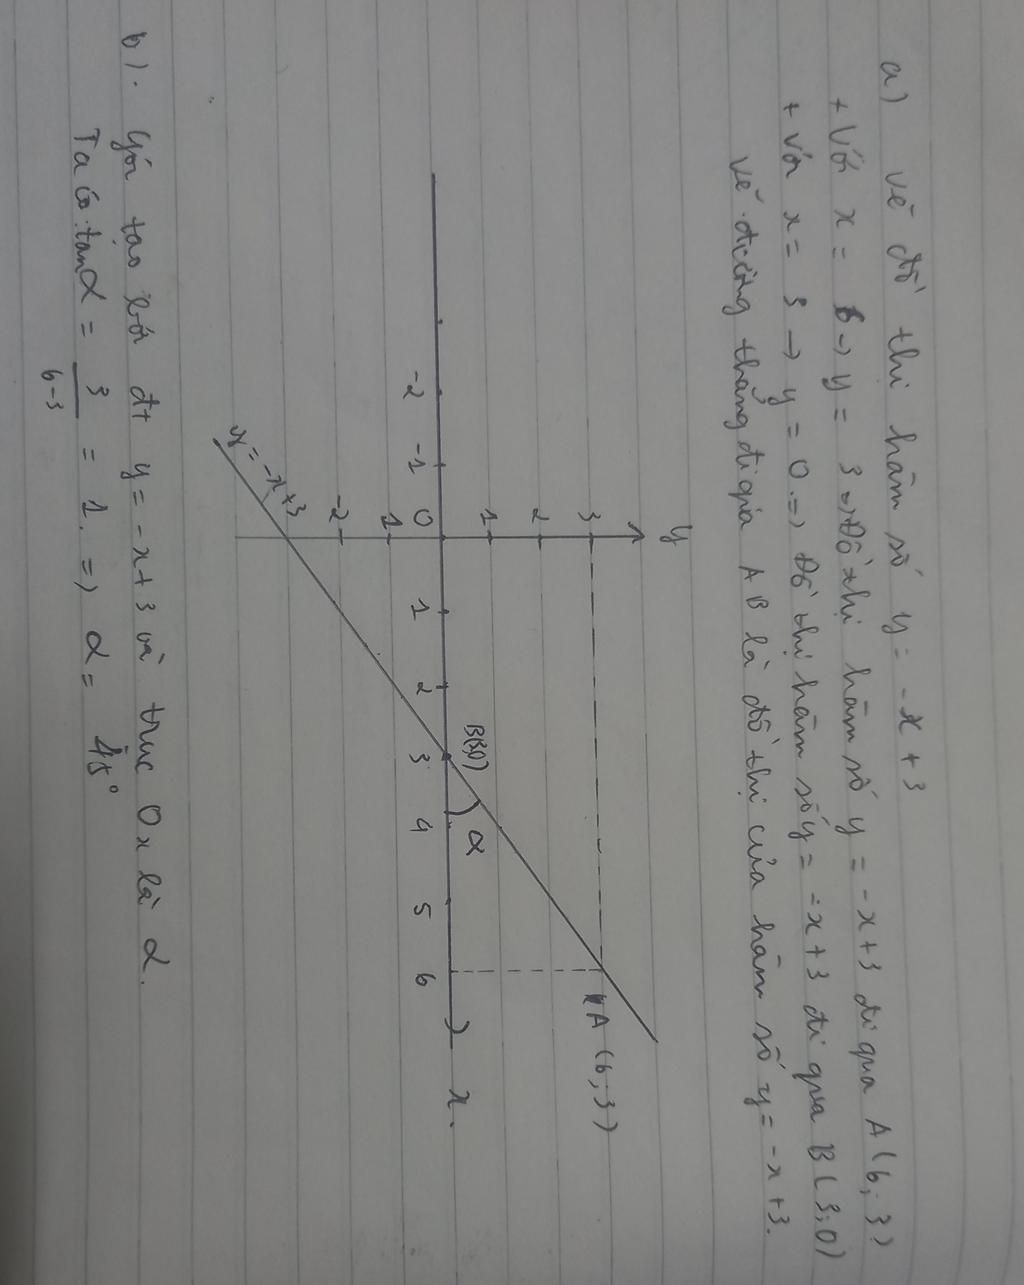 a) Vẽ đồ thi hàm số y = -x + 3
+ Với x = 6 → y = 3 → Đồ thị hàm số y = -x + 3 đi qua A (6; 3)
+ Với x = 3 → y = 0 => Đồ thị hàm số y = -x + 3 đi qua B (3; 0)
Vẽ đường thẳng đi qua A B là đồ thị của hàm số y = -x + 3.
y
3
2
1
0
1
-2
-2
-1
1
2
3
4
5
6
x.
A (6; 3)
B(3;0)
α
y = -x + 3
b). Góc tạo bởi đt y = -x + 3 và trục Ox là α.
Ta có: tan α = 3/6-3 = 1. => α = 45°